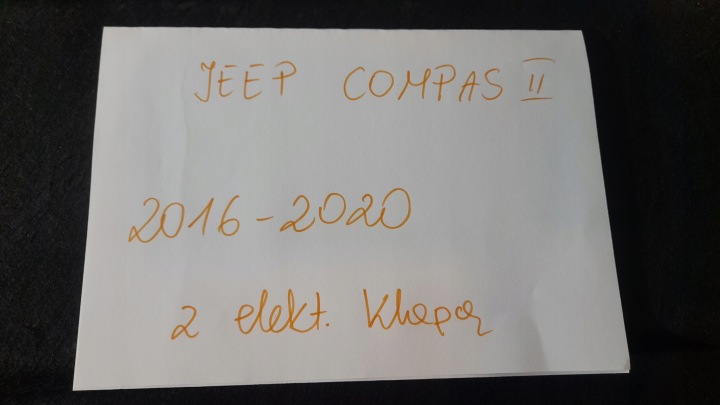 JEEP COMPAS II
2016-2020
z elekt. Klapą